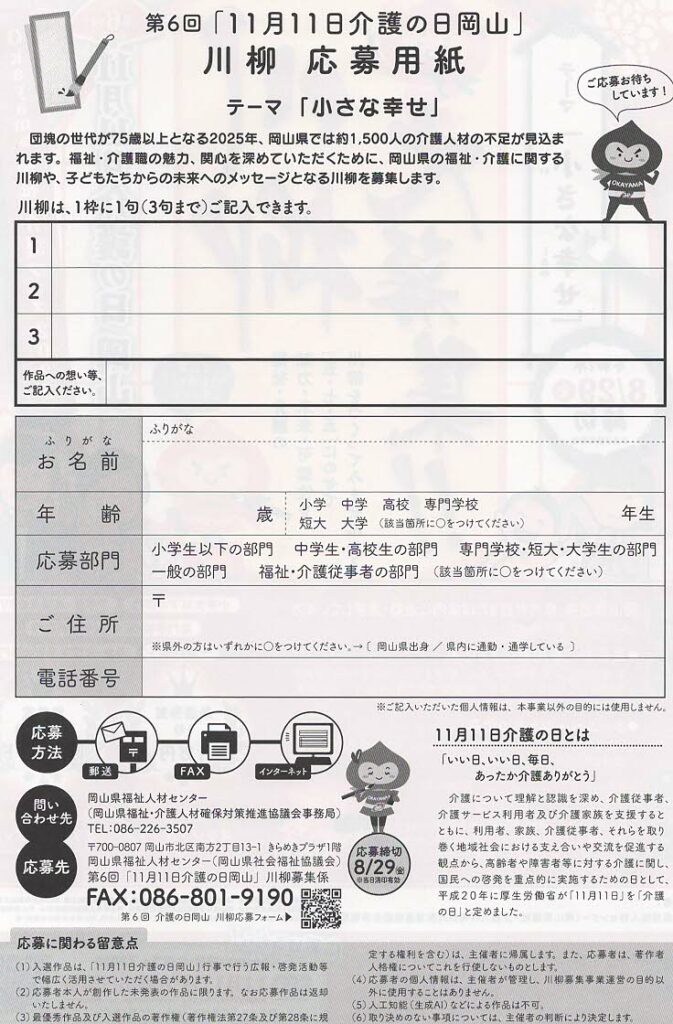 第6回「11月11日介護の日岡山」
川柳 応募用紙
テーマ「小さな幸せ」
ご応募お待ち
しています!
OKAYAMA
団塊の世代が75歳以上となる2025年、岡山県では約1,500人の介護人材の不足が見込ま
れます。福祉・介護職の魅力、関心を深めていただくために、岡山県の福祉・介護に関する
川柳や、子どもたちからの未来へのメッセージとなる川柳を募集します。
川柳は、1枠に1句(3句まで)ご記入できます。
1
2
3
作品への想い等、
ご記入ください。
ふりがな
お名前
ふりがな
年齢
歳
小学 中学 高校 専門学校
短大 大学 (該当箇所に○をつけてください)
年生
応募部門
小学生以下の部門 中学生・高校生の部門 専門学校・短大・大学生の部門
一般の部門 福祉・介護従事者の部門 (該当箇所に○をつけてください)
ご住所
〒
※県外の方はいずれかに○をつけてください。→〔 岡山県出身 / 県内に通勤・通学している 〕
電話番号
※ご記入いただいた個人情報は、本事業以外の目的には使用しません。
応募
方法
郵送
FAX
インターネット
問い
合わせ先
岡山県福祉人材センター
(岡山県福祉・介護人材確保対策推進協議会事務局)
TEL:086-226-3507
応募先
〒700-0807 岡山市北区南方2丁目13-1 きらめきプラザ1階
岡山県福祉人材センター(岡山県社会福祉協議会)
第6回「11月11日介護の日岡山」川柳募集係
FAX:086-801-9190
第6回 介護の日岡山 川柳応募フォーム▶
応募締切
8/29(金)
※当日消印有効
11月11日介護の日とは
「いい日、いい日、毎日、
あったか介護ありがとう」
介護について理解と認識を深め、介護従事者、
介護サービス利用者及び介護家族を支援すると
ともに、利用者、家族、介護従事者、それらを取り
巻く地域社会における支え合いや交流を促進する
観点から、高齢者や障害者等に対する介護に関し、
国民への啓発を重点的に実施するための日として、
平成20年に厚生労働省が「11月11日」を「介護
の日」と定めました。
応募に関わる留意点
(1)入選作品は、「11月11日介護の日岡山」行事で行う広報・啓発活動等
で幅広く活用させていただく場合があります。
(2)応募者本人が創作した未発表の作品に限ります。なお応募作品は返却
いたしません。
(3)最優秀作品及び入選作品の著作権(著作権法第27条及び第28条に規
定する権利を含む)は、主催者に帰属します。また、応募者は、著作者
人格権についてこれを行使しないものとします。
(4)応募者の個人情報は、主催者が管理し、川柳募集事業運営の目的以
外に使用することはありません。
(5)人工知能(生成AI)などによる作品は不可。
(6)取り決めのない事項については、主催者の判断により決定します。